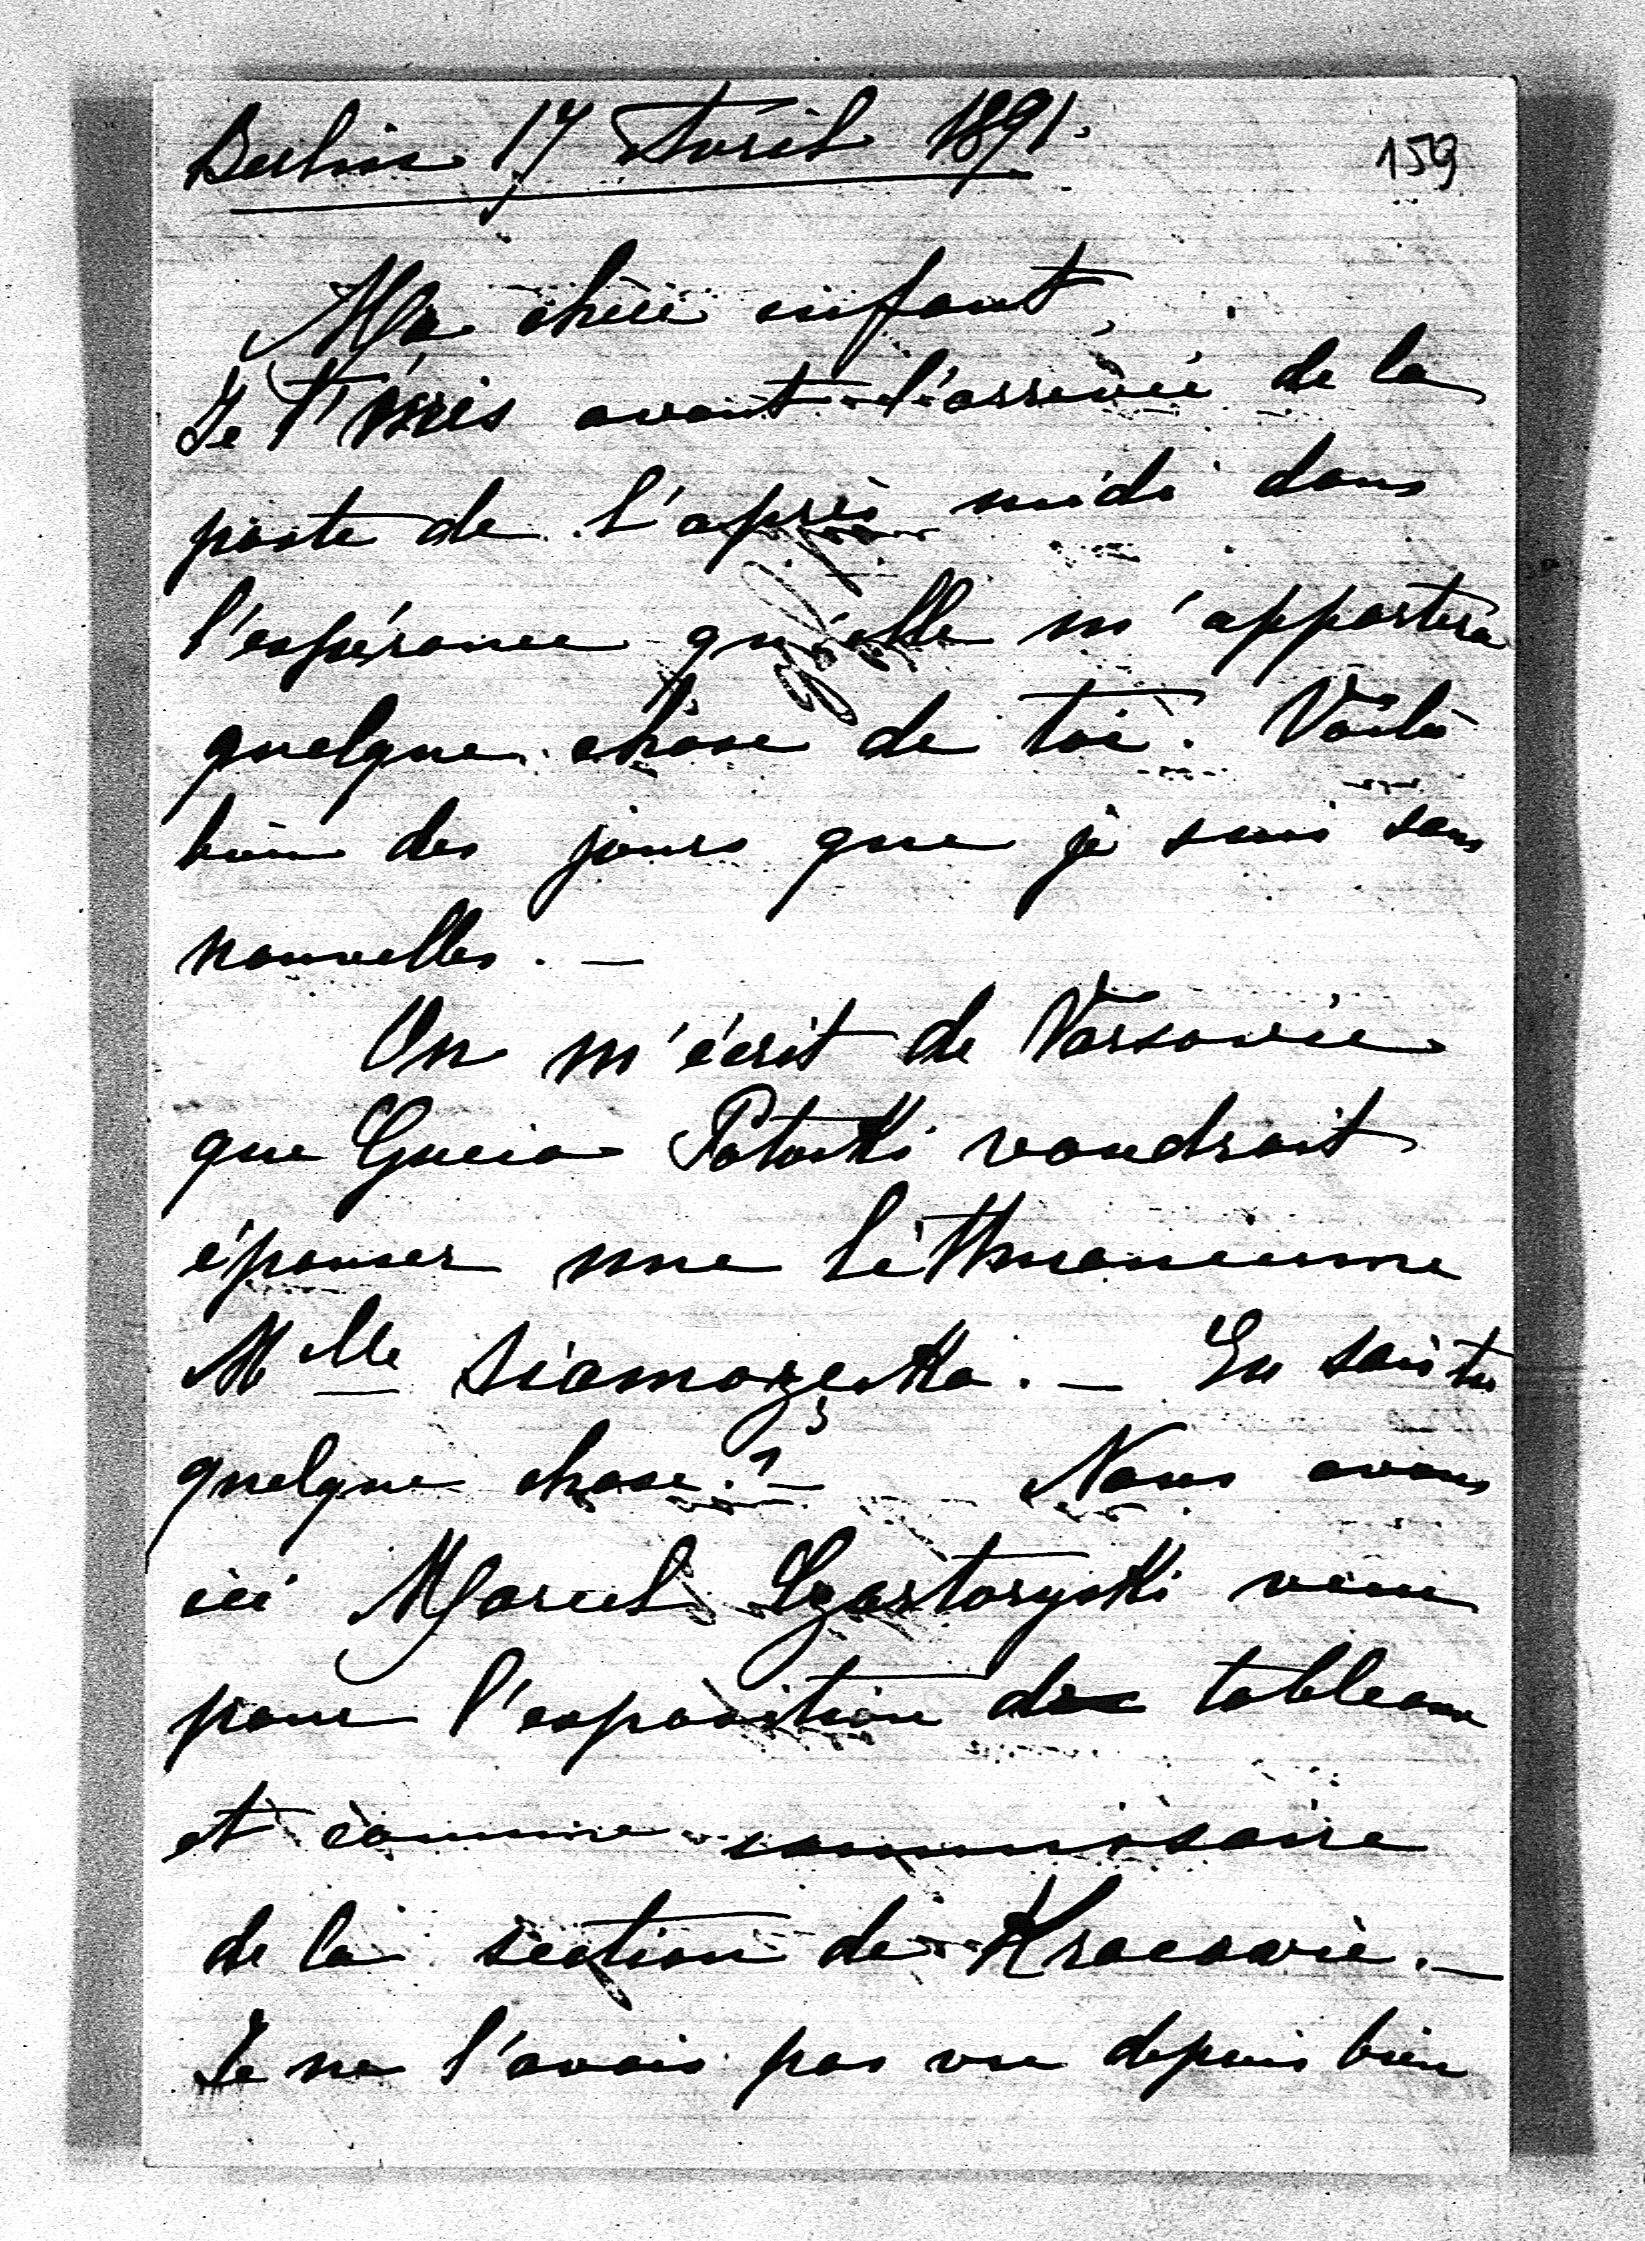 Berlin 17 Avril 1891.
159
Ma chère enfant,
Je t'écris avant l'arrivée de la
poste de l'après midi dans
l'espérance qu'elle m'apportera
quelque chose de toi. Voilà
bien des jours que je suis sans
nouvelles. —
On m'écrit de Varsovie
que Gucio Potocki voudrait
épouser une Lithuanienne
Mlle . — En sais tu
quelque chose? — Nous avons
ici Marcel Czartoryski venu
pour l'exposition de tableaux
et comme commissaire
de la section de Kracovie. —
Je ne l'avais pas vu depuis bien